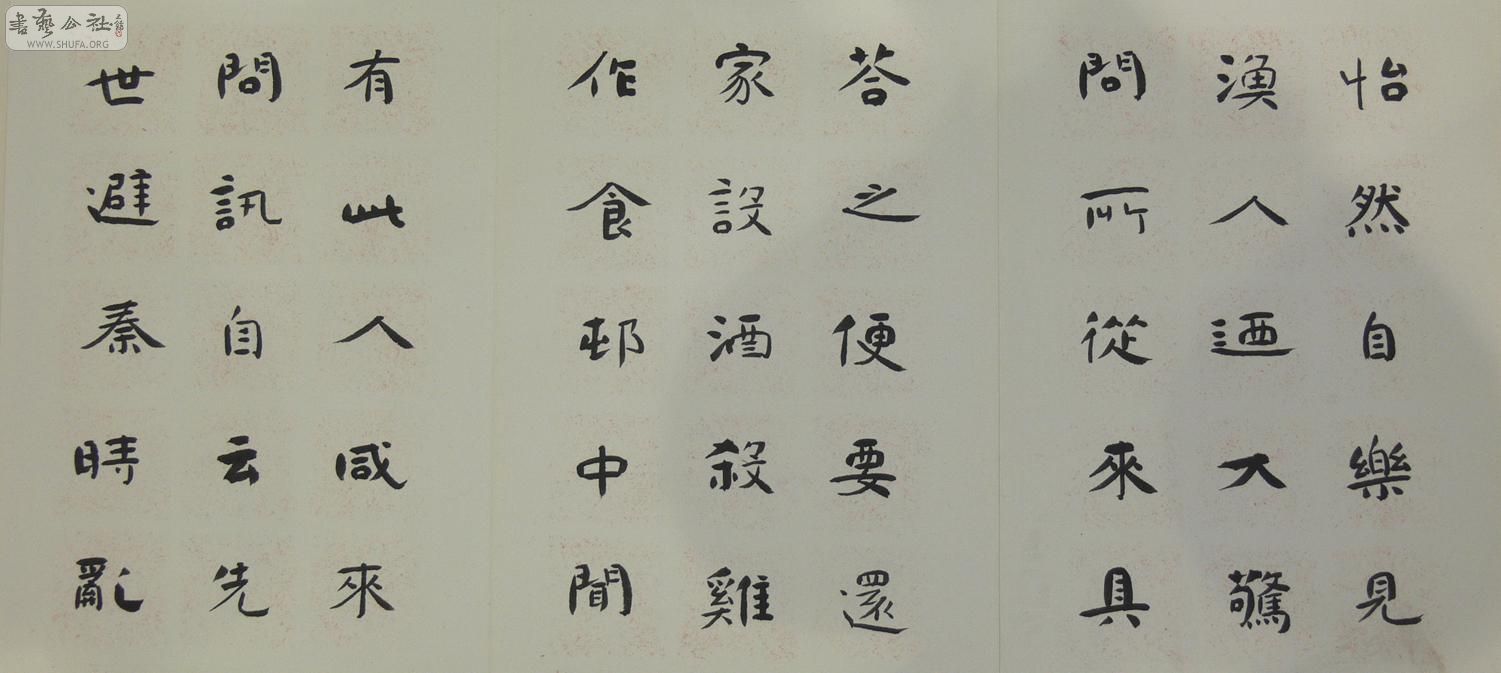 怡然自樂見
漁人迺大驚
問所從來具
荅之便要還
家設酒殺雞
作食邨中聞
有此人咸來
問訊自云先
世避秦時亂
書藝公社
WWW.SHUFA.ORG